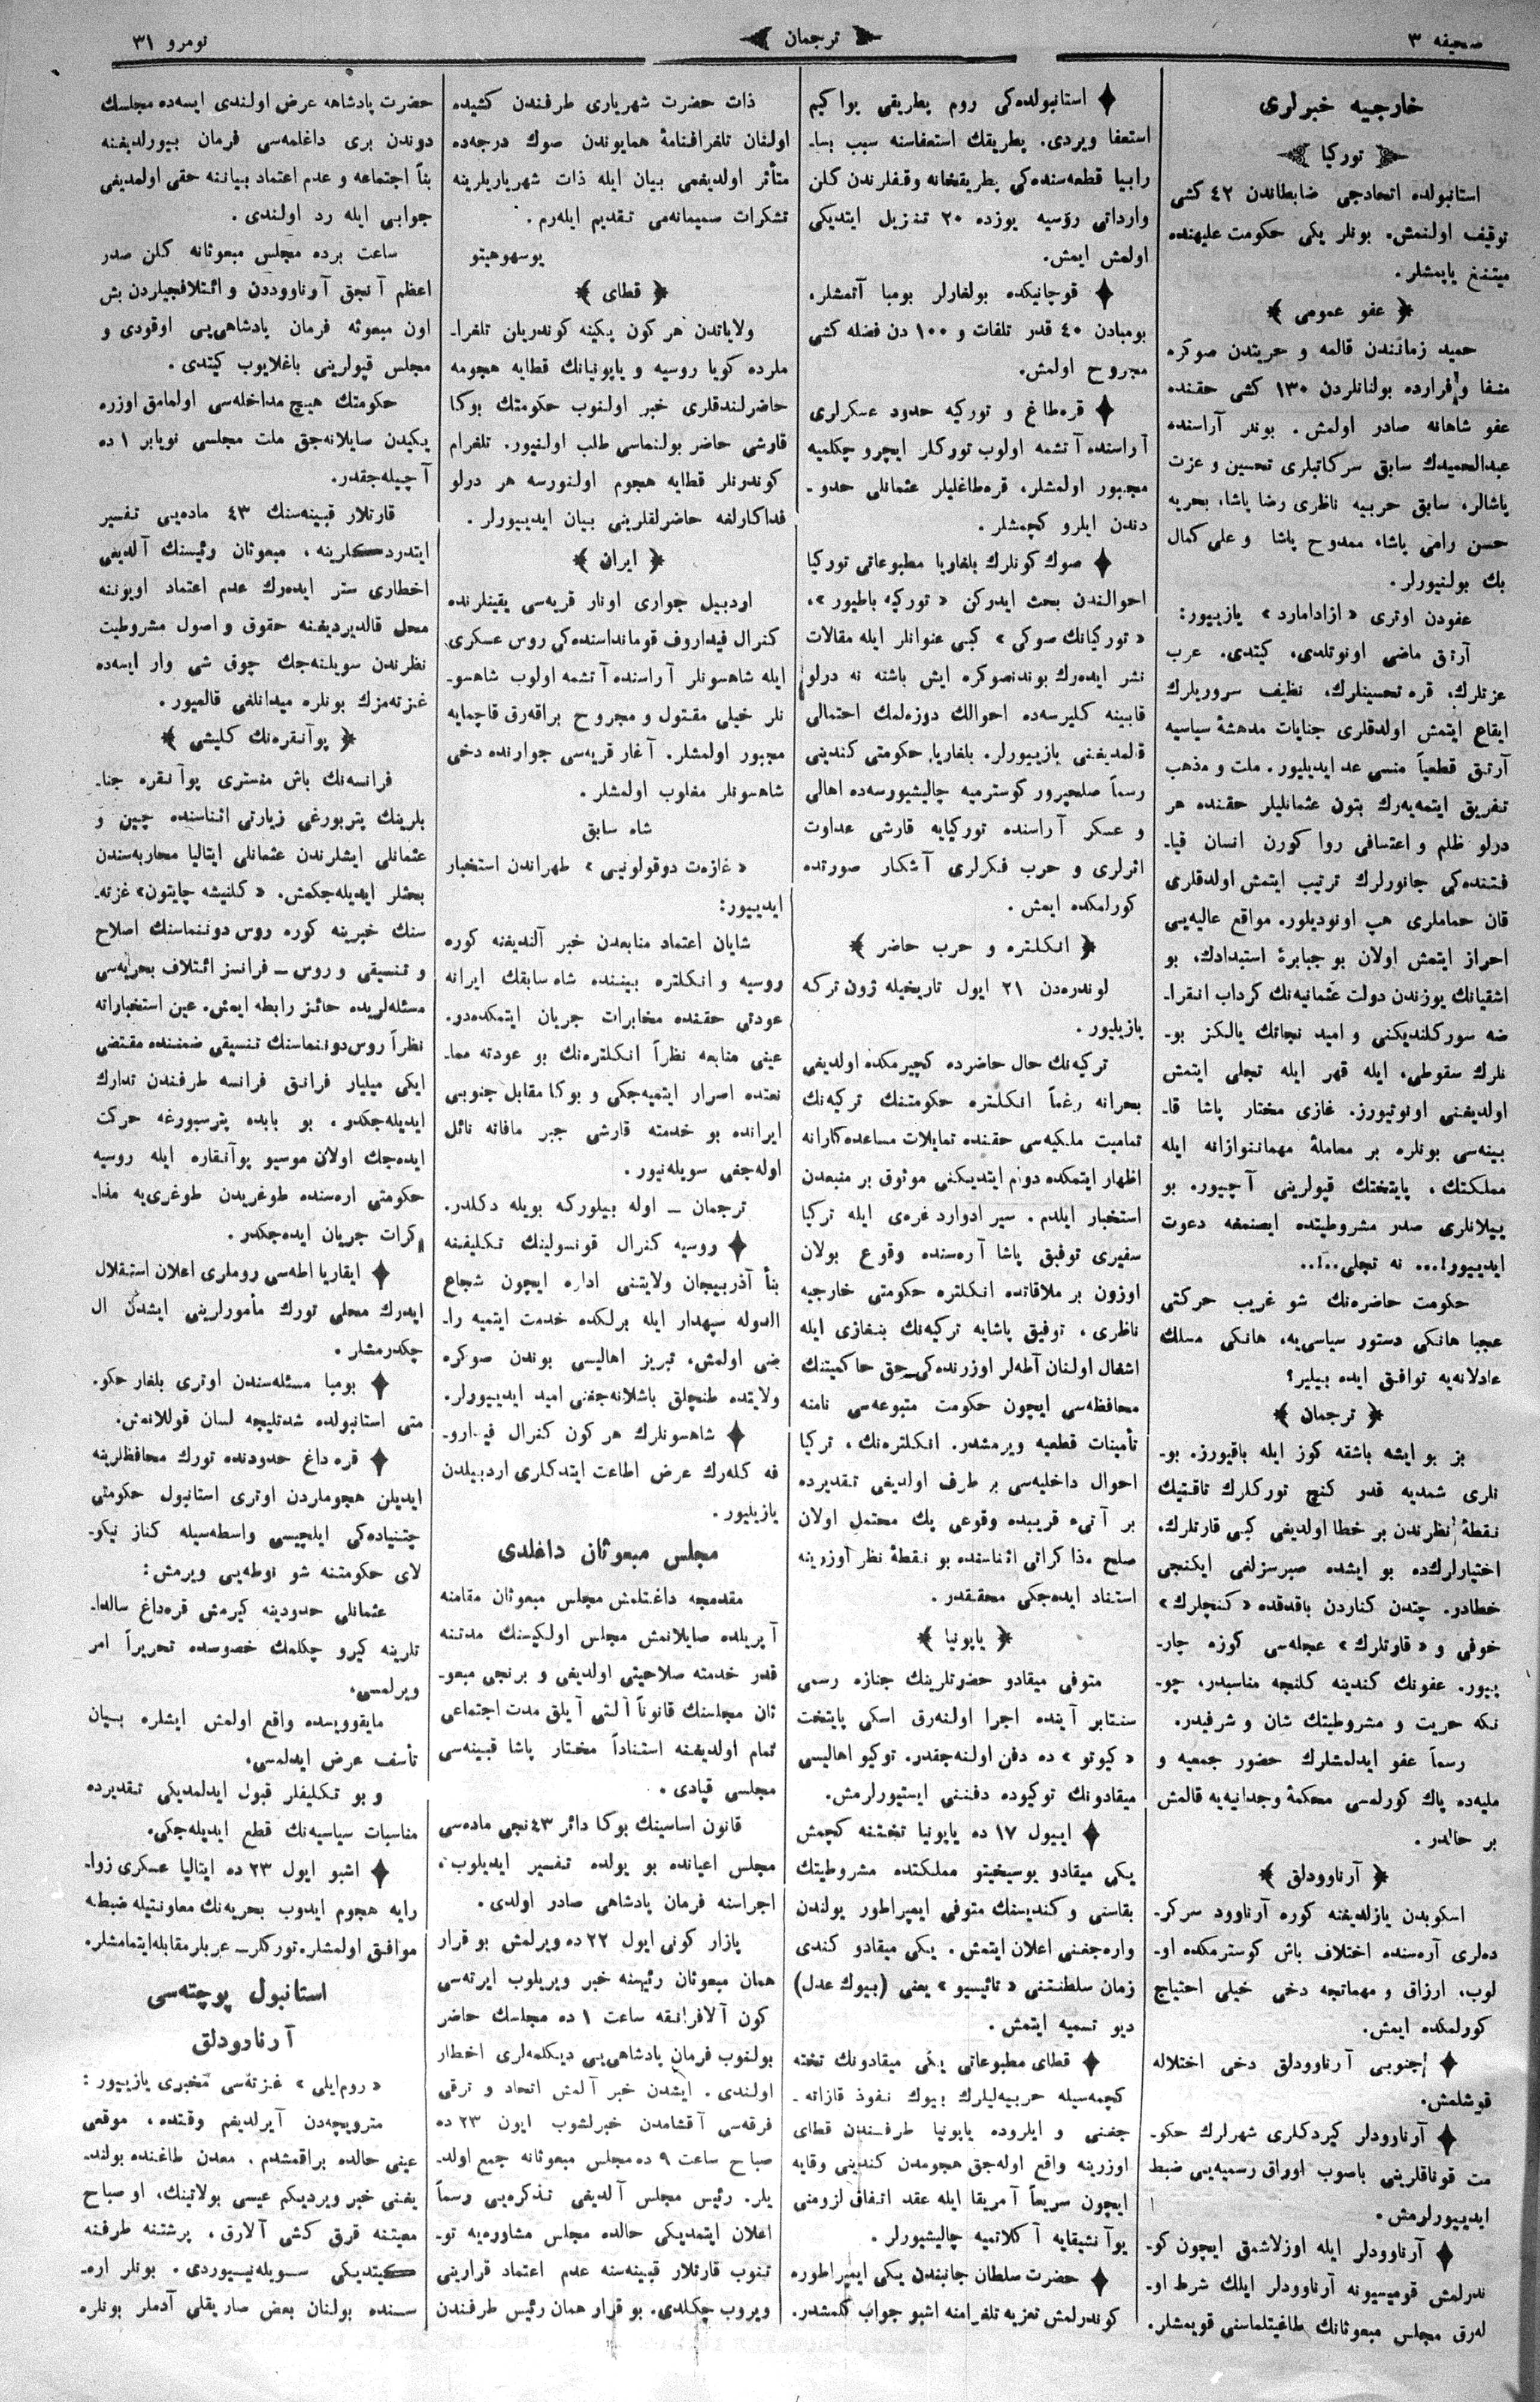 صحیفه ٣
ترجمان
نومرو ٣١
خارجیه خبرلری
تورکیا
استانبولده اتحادجی ضابطاندن ٤٢ کشی
توقیف اولنمش. بونلر یکی حکومت علیهنده
میتنغ یاپمشلر.
عفو عمومی
حمید زمانندن قالمه و حریتدن صوکره
منفا و فرارده بولنانلردن ١٣٠ کشی حقنده
عفو شاهانه صادر اولمش. بونلر آراسنده
عبدالحمیدك سابق سرکاتبلری تحسین و عزت
پاشالر، سابق حربیه ناظری رضا پاشا، بحریه
حسن رامی پاشا، ممدوح پاشا و علی کمال
بك بولنیورلر.
عفودن اوتری « ازادامارد » یازییور:
آرتق ماضی اونوتلدی، کیتدی. عرب
عزتلرك، قره تحسینلرك، نظیف سروریلرك
ایقاع ایتمش اولدقلری جنایات مدهشهٔ سیاسیه
آرتق قطعیاً منسی عد ایدیلیور. ملت و مذهب
تفریق ایتمه‌یه‌رك بتون عثمانلیلر حقنده هر
درلو ظلم و اعتسافی روا کورن انسان قیا-
فتنده‌کی جانورلرك ترتیب ایتمش اولدقلری
قان حماملری هپ اونودیلور. مواقع عالیه‌یی
احراز ایتمش اولان بو جبابرهٔ استبدادك، بو
اشقیانك یوزندن دولت عثمانیه‌نك کرداب انقرا-
ضه سورکلندیکنی و امید نجاتك یالکز بو-
نلرك سقوطی، ایله قهر ایله تجلی ایتمش
اولدیغنی اونوتیورز. غازی مختار پاشا قا-
بینه‌سی بونلره بر معاملهٔ مهماننوازانه ایله
مملکتك، پایتختك قپولرینی آچیور، بو
ییلانلری صدر مشروطیتده ایصنمغه دعوت
ایدییور!... نه تجلی..!..
حکومت حاضره‌نك شو غریب حرکتی
عجبا هانکی دستور سیاسی‌یه، هانکی مسلك
عادلانه‌یه توافق ایده بیلیر؟
ترجمان
بز بو ایشه باشقه کوز ایله باقیورز. بو-
نلری شمدیه قدر کنج تورکلرك تاقتیك
نقطهٔ نظرندن بر خطا اولدیغی کبی قارتلرك،
اختیارلرك‌ده بو ایشده صبرسزلغی ایکنجی
خطادر. چتدن کناردن باقدقده « کنجلرك »
خوفی و « قارتلرك » عجله‌سی کوزه چار-
پیور. عفونك کندینه کلنجه مناسبدر، چو-
نکه حریت و مشروطیتك شان و شرفیدر.
رسماً عفو ایدلمشلرك حضور جمعیه و
ملیه‌ده پاك کورلمسی محکمهٔ وجدانیه‌یه قالمش
بر حالدر.
آرناوودلق
اسکوبدن یازلدیغنه کوره آرناوود سرکر-
ده‌لری آره‌سنده اختلاف باش کوسترمکده او-
لوب، ارزاق و مهماتجه دخی خیلی احتیاج
کورلمکده ایمش.
جنوبی آرناوودلق دخی اختلاله
قوشلمش.
آرناوودلر کیردکلری شهرلرك حکو-
مت قوناقلرینی باصوب اوراق رسمیه‌یی ضبط
ایدییورلرمش.
آرناوودلر ایله اوزلاشمق ایچون کو-
ندرلمش قومیسیونه آرناوودلر ایلك شرط او-
له‌رق مجلس مبعوثانك طاغیتلماسنی قویمشلر.
استانبولده‌کی روم پطریقی یواکیم
استعفا ویردی. پطریقك استعفاسنه سبب بسا-
رابیا قطعه‌سنده‌کی پطریقخانه وقفلرندن کلن
وارداتی روسیه یوزده ٢٠ تنزیل ایتدیکی
اولمش ایمش.
قوچانیکده بولغارلر بومبا آتمشلر.
بومبادن ٤٠ قدر تلفات و ١٠٠ دن فضله کشی
مجروح اولمش.
قره‌طاغ و تورکیه حدود عسکرلری
آراسنده آتشمه اولوب تورکلر ایچرو چکلمیه
مجبور اولمشلر، قره‌طاغلیلر عثمانلی حدو-
دندن ایلرو کچمشلر.
صوك کونلرك بلغاریا مطبوعاتی تورکیا
احوالندن بحث ایدرکن « تورکیه باطیور »،
« تورکیانك صوکی » کبی عنوانلر ایله مقالات
نشر ایده‌رك بوندنصوکره ایش باشنه نه درلو
قابینه کلیرسه‌ده احوالك دوزه‌لمك احتمالی
قالمدیغنی یازییورلر. بلغاریا حکومتی کندینی
رسماً صلحپرور کوسترمیه چالیشیورسه‌ده اهالی
و عسکر آراسنده تورکیایه قارشی عداوت
اثرلری و حرب فکرلری آشکار صورتده
کورلمکده ایمش.
انکلتره و حرب حاضر
لوندره‌دن ٢١ ایول تاریخیله ژون ترکه
یازیلیور.
ترکیه‌نك حال حاضرده کچیرمکده اولدیغی
بحرانه رغماً انکلتره حکومتنك ترکیه‌نك
تمامیت ملکیه‌سی حقنده تمایلات مساعده‌کارانه
اظهار ایتمکده دوام ایتدیکنی موثوق بر منبعدن
استخبار ایلدم. سیر ادوارد غره‌ی ایله ترکیا
سفیری توفیق پاشا آره‌سنده وقوع بولان
اوزون بر ملاقاتده انکلتره حکومتی خارجیه
ناظری، توفیق پاشایه ترکیه‌نك بنغازی ایله
اشغال اولنان آطه‌لر اوزرنده‌کی حق حاکمیتنك
محافظه‌سی ایچون حکومت متبوعه‌سی نامنه
تأمینات قطعیه ویرمشدر. انکلتره‌نك، ترکیا
احوال داخلیه‌سی بر طرف اولدیغی تقدیرده
بر آتیء قریبده وقوعی پك محتمل اولان
صلح مذاکراتی اثناسنده بو نقطهٔ نظر اوزرینه
استناد ایده‌جکی محققدر.
یاپونیا
متوفی میقادو حضرتلرینك جنازه رسمی
سنتابر آینده اجرا اولنه‌رق اسکی پایتخت
« کیوتو » ده دفن اولنه‌جقدر. توکیو اهالیسی
میقادونك توکیوده دفننی ایستیورلرمش.
ایبول ١٧ ده یاپونیا تختنه کچمش
یکی میقادو یوسیخیتو مملکتده مشروطیتك
بقاسنی و کندیسنك متوفی ایمپراطور یولندن
واره‌جغنی اعلان ایتمش. یکی میقادو کندی
زمان سلطنتنی « تائیسیو » یعنی (بیوك عدل)
دیو تسمیه ایتمش.
قطای مطبوعاتی یکی میقادونك تخته
کچمه‌سیله حربیه‌لیلرك بیوك نفوذ قازانه-
جغنی و ایلروده یاپونیا طرفندن قطای
اوزرینه واقع اوله‌جق هجومدن کندینی وقایه
ایچون سریعاً آمریقا ایله عقد اتفاق لزومنی
یوآنشیقایه آکلاتمیه چالیشیورلر.
حضرت سلطان جانبندن یکی ایمپراطوره
کوندرلمش تعزیه تلغرامنه اشبو جواب کلمشدر.
ذات حضرت شهریاری طرفندن کشیده
اولنان تلغرافنامهٔ همایوندن صوك درجه‌ده
متأثر اولدیغمی بیان ایله ذات شهریاریلرینه
تشکرات صمیمانه‌می تقدیم ایله‌رم.
یوسهوهیتو
قطای
ولایاتدن هر کون پکینه کوندریلن تلغرا-
ملرده کویا روسیه و یاپونیانك قطایه هجومه
حاضرلندقلری خبر اولنوب حکومتك بوکا
قارشی حاضر بولنماسی طلب اولنیور. تلغرام
کوندرنلر قطایه هجوم اولنورسه هر درلو
فداکارلغه حاضرلقلرینی بیان ایدییورلر.
ایران
اردبیل جواری اونار قریه‌سی یقینلرنده
کنرال فیداروف قومانداسنده‌کی روس عسکری
ایله شاهسونلر آراسنده آتشمه اولوب شاهسو-
نلر خیلی مقتول و مجروح براقه‌رق قاچمایه
مجبور اولمشلر. آغار قریه‌سی جوارنده دخی
شاهسونلر مغلوب اولمشلر.
شاه سابق
« غازه‌ت دوقولونیی » طهراندن استخبار
ایدییور:
شایان اعتماد منابعدن خبر آلندیغنه کوره
روسیه و انکلتره بیننده شاه سابقك ایرانه
عودتی حقنده مخابرات جریان ایتمکده‌در.
عینی منابعه نظراً انکلتره‌نك بو عودته مما-
نعتده اصرار ایتمیه‌جکی و بوکا مقابل جنوبی
ایرانده بو خدمته قارشی جبر مافاته نائل
اوله‌جغی سویله‌نیور.
ترجمان — اوله بیلورکه بویله دکلدر.
روسیه کنرال قونسولینك تکلیفنه
بنأ آذربیجان ولایتنی اداره ایچون شجاع
الدوله سپهدار ایله برلکده خدمت ایتمیه را-
ضی اولمش، تبریز اهالیسی بوندن صوکره
ولایتده طنچلق باشلانه‌جغنی امید ایدییورلر.
شاهسونلرك هر کون کنرال فیدارو-
فه کله‌رك عرض اطاعت ایتدکلری اردبیلدن
یازیلیور.
مجلس مبعوثان داغلدی
مقدمجه داغتلمش مجلس مبعوثان مقامنه
آیریلده صایلانمش مجلس اولکیسنك مدتنه
قدر خدمته صلاحیتی اولدیغی و برنجی مبعو-
ثان مجلسنك قانوناً آلتی آیلق مدت اجتماعی
تمام اولدیغنه استناداً مختار پاشا قبینه‌سی
مجلسی قپادی.
قانون اساسینك بوکا دائر ٤٣نجی ماده‌سی
مجلس اعیانده بو یولده تفسیر ایدیلوب،
اجراسنه فرمان پادشاهی صادر اولدی.
پازار کونی ایول ٢٢ ده ویرلمش بو قرار
همان مبعوثان رئیسنه خبر ویریلوب ایرته‌سی
کون آلافرانقه ساعت ١ ده مجلسك حاضر
بولنوب فرمان پادشاهی‌یی دیکلمه‌لری اخطار
اولندی. ایشدن خبر آلمش اتحاد و ترقی
فرقه‌سی آقشامدن خبرلشوب ایون ٢٣ ده
صباح ساعت ٩ ده مجلس مبعوثانه جمع اولد-
یلر. رئیس مجلس آلدیغی تذکره‌یی رسماً
اعلان ایتمدیکی حالده مجلس مشاوره‌یه تو-
تنوب قارتلار قبینه‌سنه عدم اعتماد قرارینی
ویروب چکلدی. بو قرار همان رئیس طرفندن
حضرت پادشاهه عرض اولندی ایسه‌ده مجلسك
دوندن بری داغلمه‌سی فرمان بیورلدیغنه
بنأ اجتماعه و عدم اعتماد بیاننه حقی اولمدیغی
جوابی ایله رد اولندی.
ساعت برده مجلس مبعوثانه کلن صدر
اعظم آنجق آرناووددن و ائتلافجیلردن بش
اون مبعوثه فرمان پادشاهی‌یی اوقودی و
مجلس قپولرینی باغلایوب کیتدی.
حکومتك هیچ مداخله‌سی اولمامق اوزره
یکیدن صایلانه‌جق ملت مجلسی نویابر ١ ده
آچیله‌جقدر.
قارتلار قبینه‌سنك ٤٣ ماده‌یی تفسیر
ایتدردکلرینه، مبعوثان رئیسنك آلدیغی
اخطاری ستر ایده‌رك عدم اعتماد اویوننه
محل قالدیردیغنه حقوق و اصول مشروطیت
نظرندن سویلنه‌جك چوق شی وار ایسه‌ده
غزته‌مزك بونلره میدانلغی قالمیور.
پوآنقره‌نك کلیشی
فرانسه‌نك باش منستری پوآنقره جنا-
بلرینك پتربورغی زیارتی اثناسنده چین و
عثمانلی ایشلرندن عثمانلی ایتالیا محاربه‌سندن
بحثلر ایدیله‌جکمش. « کلنیشه چایتون» غزته-
سنك خبرینه کوره روس دونماسنك اصلاح
و تنسیقی و روس — فرانسز ائتلاف بحریه‌سی
مسئله‌لریده حائز رابطه ایمش. عین استخباراته
نظراً روس‌دونماسنك تنسیقی ضمننده مقتضی
ایکی میلیار فرانق فرانسه طرفندن تدارك
ایدیله‌جکدر. بو بابده پترسبورغه حرکت
ایده‌جك اولان موسیو پوآنقاره ایله روسیه
حکومتی اره‌سنده طوغریدن طوغری‌یه مذا-
کرات جریان ایده‌جکدر.
ایقاریا اطه‌سی روملری اعلان استقلال
ایدرك محلی تورك مأمورلرینی ایشدن ال
چکدرمشلر.
بومبا مسئله‌سندن اوتری بلغار حکو-
متی استانبولده شدتلیجه لسان قوللانمش.
قره داغ حدودنده تورك محافظلرینه
ایدیلن هجوماردن اوتری استانبول حکومتی
چتنیاده‌کی ایلچیسی واسطه‌سیله کناز نیکو-
لای حکومتنه شو نوطه‌یی ویرمش:
عثمانلی حدودینه کیرمش قره‌داغ سالدا-
تلرینه کیرو چکلمك خصوصده تحریراً امر
ویرلمسی،
مایقوویسده واقع اولمش ایشلره بیان
تأسف عرض ایدلمسی،
و بو تکلیفلر قبول ایدلمدیکی تقدیرده
مناسبات سیاسیه‌نك قطع ایدیله‌جکی.
اشبو ایول ٢٣ ده ایتالیا عسکری زوا-
رایه هجوم ایدوب بحریه‌نك معاونتیله ضبطه
موافق اولمشلر. تورکلر — عربلر مقابله‌ایتمامشلر.
استانبول پوچته‌سی
آرناوودلق
« روم‌ایلی » غزته‌سی مخبری یازییور:
متروویچه‌دن آیرلدیغم وقتده، موقعی
عینی حالده براقمشدم. معدن طاغنده بولند-
یغنی خبر ویردیکم عیسی بولاتینك، او صباح
معیتنه قرق کشی آلارق، پرشتنه طرفنه
کیتدیکی سویله‌نیوردی. بونلر اره-
سنده بولنان بعض صاریقلی آدملر بونلره